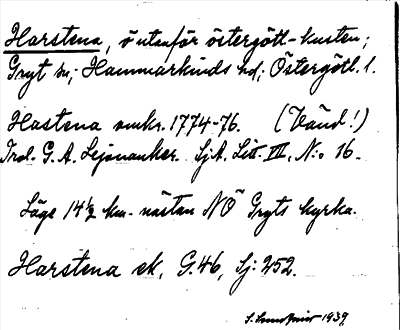 Harstena, ö utanför östergötl-kusten;
Gryt sn; Hammarkinds hd; Östergötl. l.
Hastena omkr. 1774-76. (Vänd!)
G. A. Lejonanker. SjA. Litt. III, N:o 16.
Läge 14½ km. nästan NÖ Gryts kyrka.
Harstena ek, G.46, Sj: 252.
1939